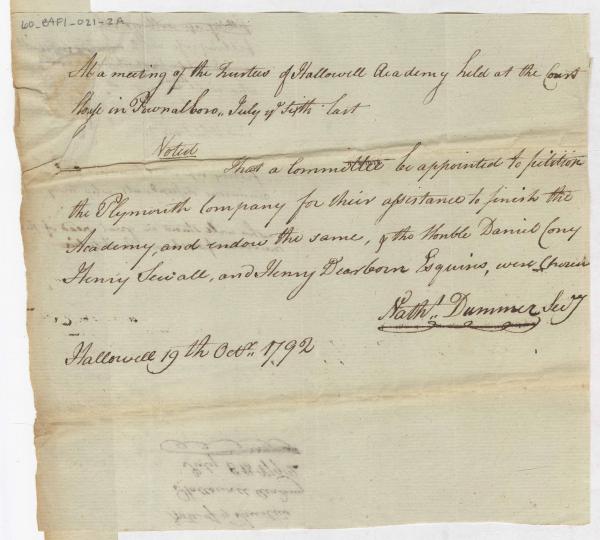 60_B4F1_021-2A
At a meeting of the Trustees of Hallowell Academy held at the Court
House in Pownalboro,, July ye Sixth last
Voted
That a Committee be appointed to petition
the Plymouth Company for their assistance to finish the
Academy, and endow the same, & the Honble Daniel Cony
Henry Sewall, and Henry Dearborn Esquires, were Chosen
Nathl. Dummer Secy
Hallowell 19th Octr. 1792